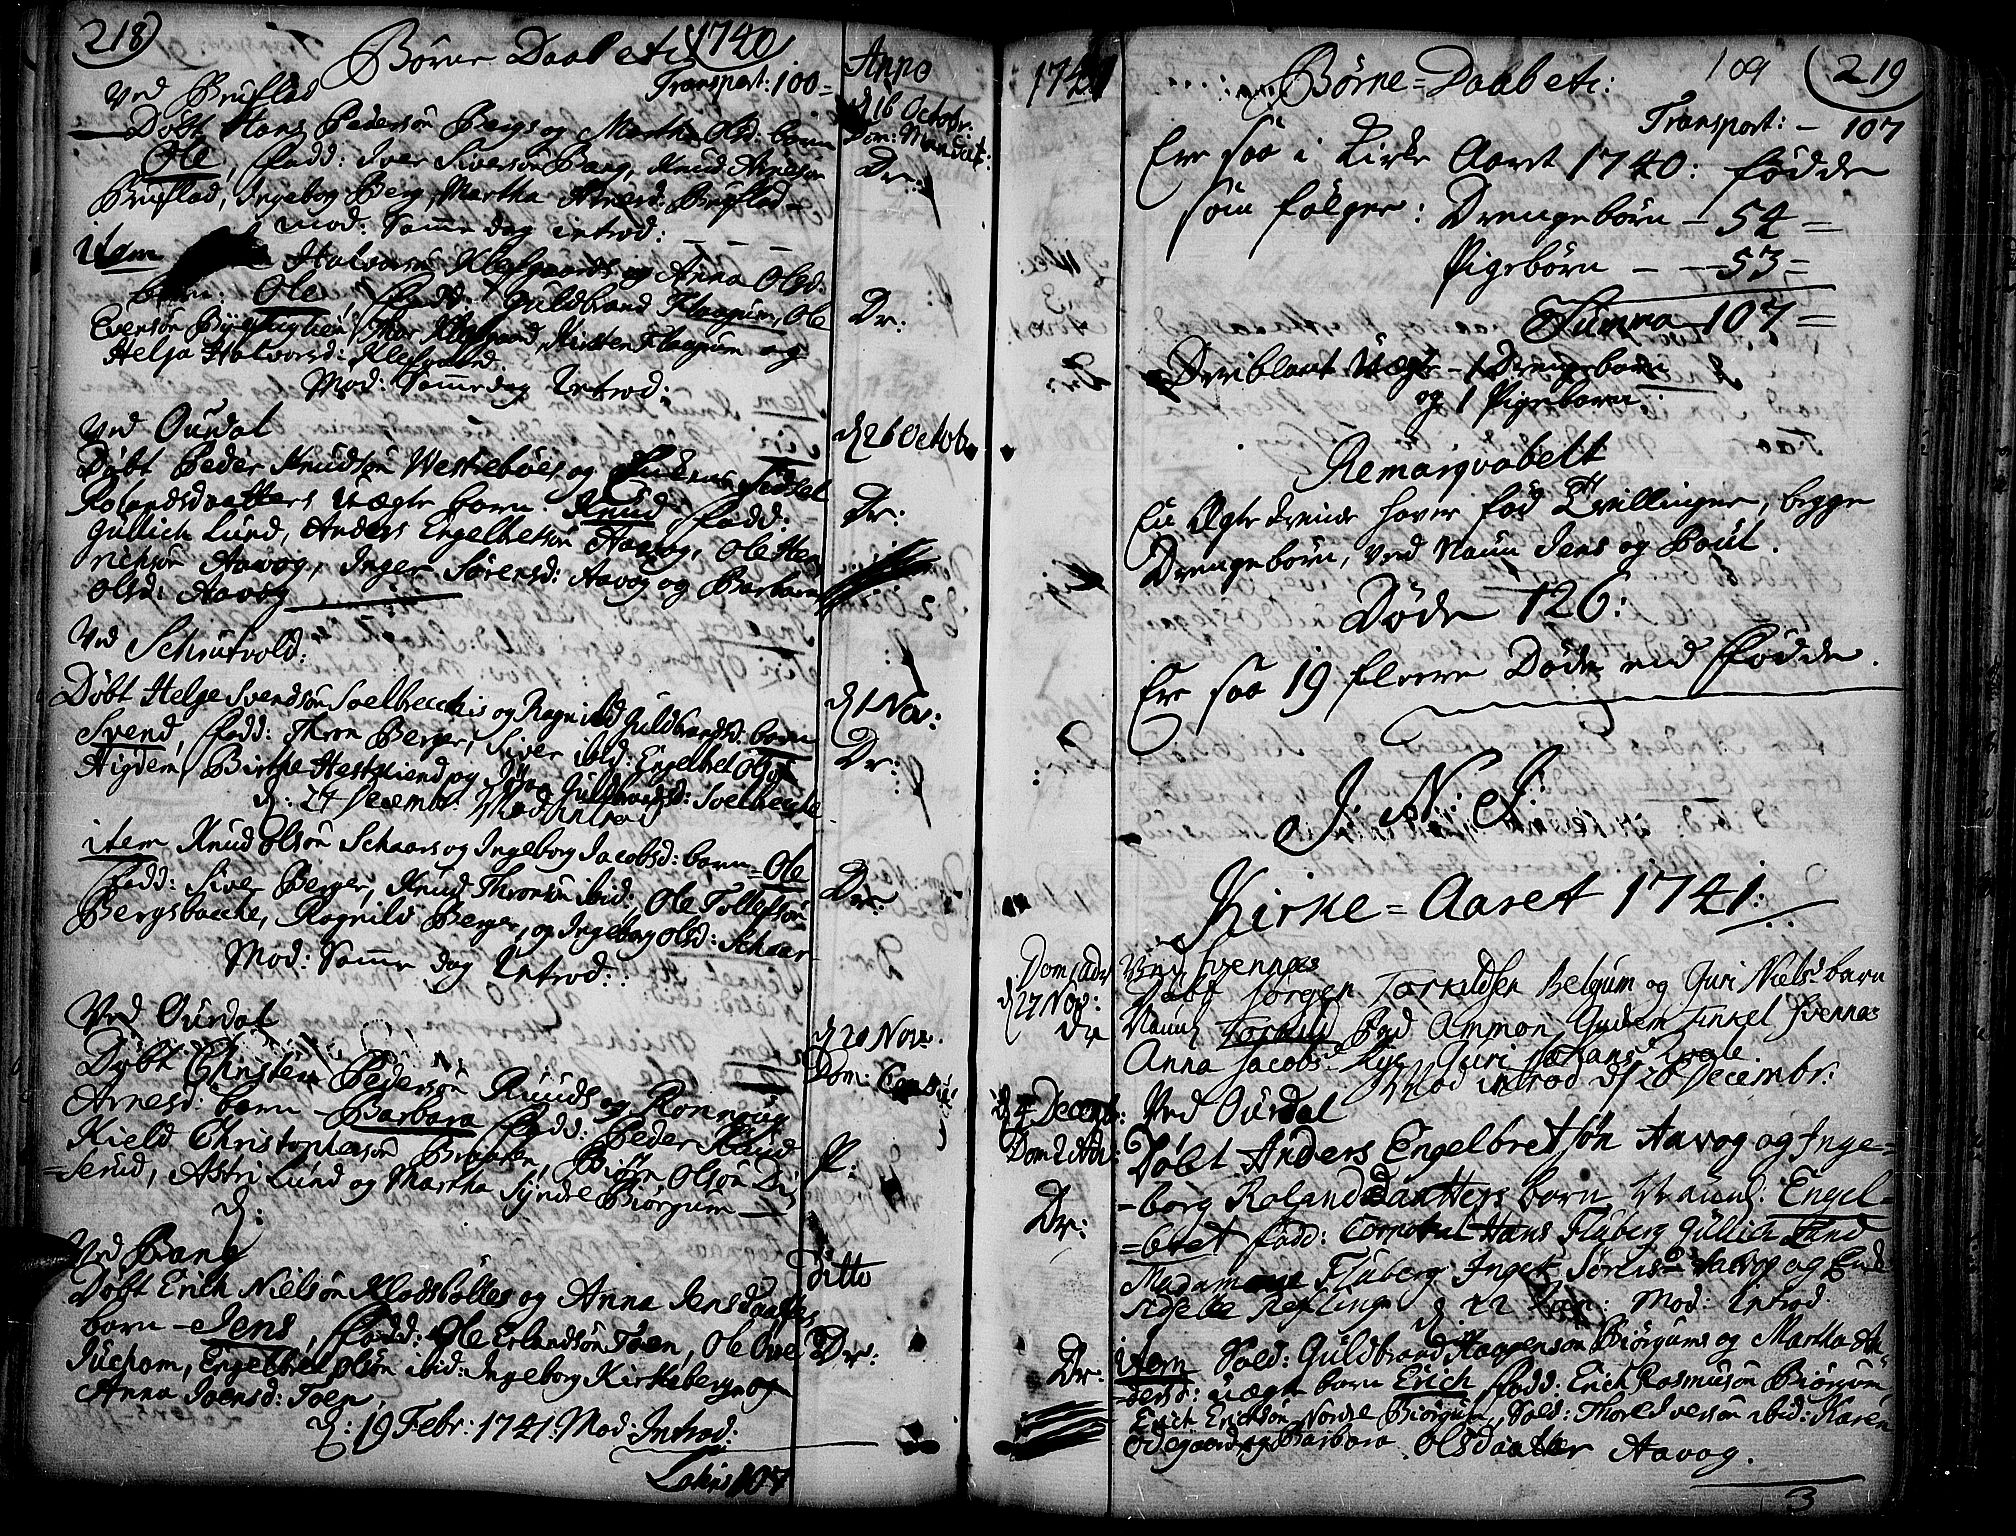 218
Børne Daabet: 1740
Anno
Transport: 100=
Ved Bruflad
d 16 Octobr:
Døbt Hans Pedersøn Bergs og Martha Olsd: barn
Ole, fadd: Iver Siversøn Baag, Knud Arnesøn
Dr:
Bruflad, Ingebog Berg, Martha Arnesd: Bruflad
Mod: Samme dag introd:
item Halvorsøn Klefgaards og Anna Olsd:
barn: Ole, fadd: Guldbrand Flaagum, Ole
Dr:
Evensøn, Thor Klefgaard, Kirsten Flaagum og
Helje Halvorsd: Klefgaard.
Mod: Samme dag Introd:
Ved Ourdal
d 26 Octob
Døbt Peder Knudsøn Westrebøes og Sidsel
Rolandsdaatters Uægte barn: Knud fadd:
Dr:
Gullich Lund, Anders Engelbretsøn Aavog, Ole Hen
richsøn Aavog, Inger Sørensd: Aavog og Barbara
Olsd: Aavog
Ved Schrutvold:
Døbt Helge Svendsøn Soelbrecchis og Ragnild Guldbrandsd: barn
d 1 Nov:
Svend, fadd: Thron Berger, Siver ibid: Engelbet Ols
Dr:
Higdem, Birthe Hestekiend og Jøra Guldbrandsd: Soelbrecke
d: 27 Decembr: Mod introd
item Knud Olsøn Schaars og Ingeborg Jacobsd: barn=Ole
fadd: Siver Berger, Knud Thronsøn ibid: Ole Tollefsøn
Dr:
Bergsbacche, Ragnild Berger, og Ingeborg Olsd: Schaar
Mod: Samme dag Introd:
Ved Ourdal
d 20 Nov:
Døbt Christen Pedersøn Ruuds og Ronnoug
Dom:
Arnesd: barn - Barbara fadd: Peder Ruud
Kield Christophersøn Braaten, Biørn Olsøn Dis
P:
=serud, Astri Lund og Martha Syndre Biørgum
Ved Bang
Ditto
Døbt Erich Nielsøn Kladsbølles og Anna Jensdaatters
barn - Jens, fadd: Ole Erlandsøn Toen, Ole Over
Dr:
Jucham, Engelbret Olsøn ibid: Ingeborg Kirkeberge og
Anna Joensd: Toen,
d: 19 Febr: 1741: Mod: Introd:
Lateris 107
1741
Børne=Daabet:
109
219
Transport: - 107
Ere saa i Kirke Aaret 1740: fødde
som følger: Drengebørn - 54=
Pigebørn - - 53=
Summa 107=
Deriblant Uægte - 1 Drengebarn
og 1 Pigebarn.
Remarqvabelt
En Ægte qvinde haver fød Tvillinger, begge
Drengebørn, ved Naun Jens og Poul.
Døde 126:
Ere saa 19 fleere Døde end fødde.
J: N: J:
Kirke=Aaret 1741:
Dom 1 Adv
Ved Svennes
d 27 Nov:
Døbt Jørgen Torkildsen Belgum og Guri Nielsd barn
Dr
Naun Torkild Fad Ammon Gudem Svennes
Anna Jacobs Guri Johans
Mod introd d 26 Decembr:
d 4 Decemb:
Ved Ourdal
Dom 2 Adv:
Døbt Anders Engelbretsøn Aavog og Inge=
-borg Rolandsdaatters barn Naun: Engel=
Dr:
=bret fadd: Cornetel Hans Fluberg Gullich Lund
Madam Fluberg Inger Sørensd Aavog og
Sidselle Refling d 22 Jan: Mod: Introd.
Dr:
item Sold: Guldbrand Haagensøn Biørgums og Martha An
-dersd: uægte barn Erich fadd: Erich Rasmusøn Biørgum
Erich Erichsøn Nordre Biørgum, Sold: Thore Iversøn ibid: Karen
Ødegaard og Barbara Olsdaatter Aavog.
3